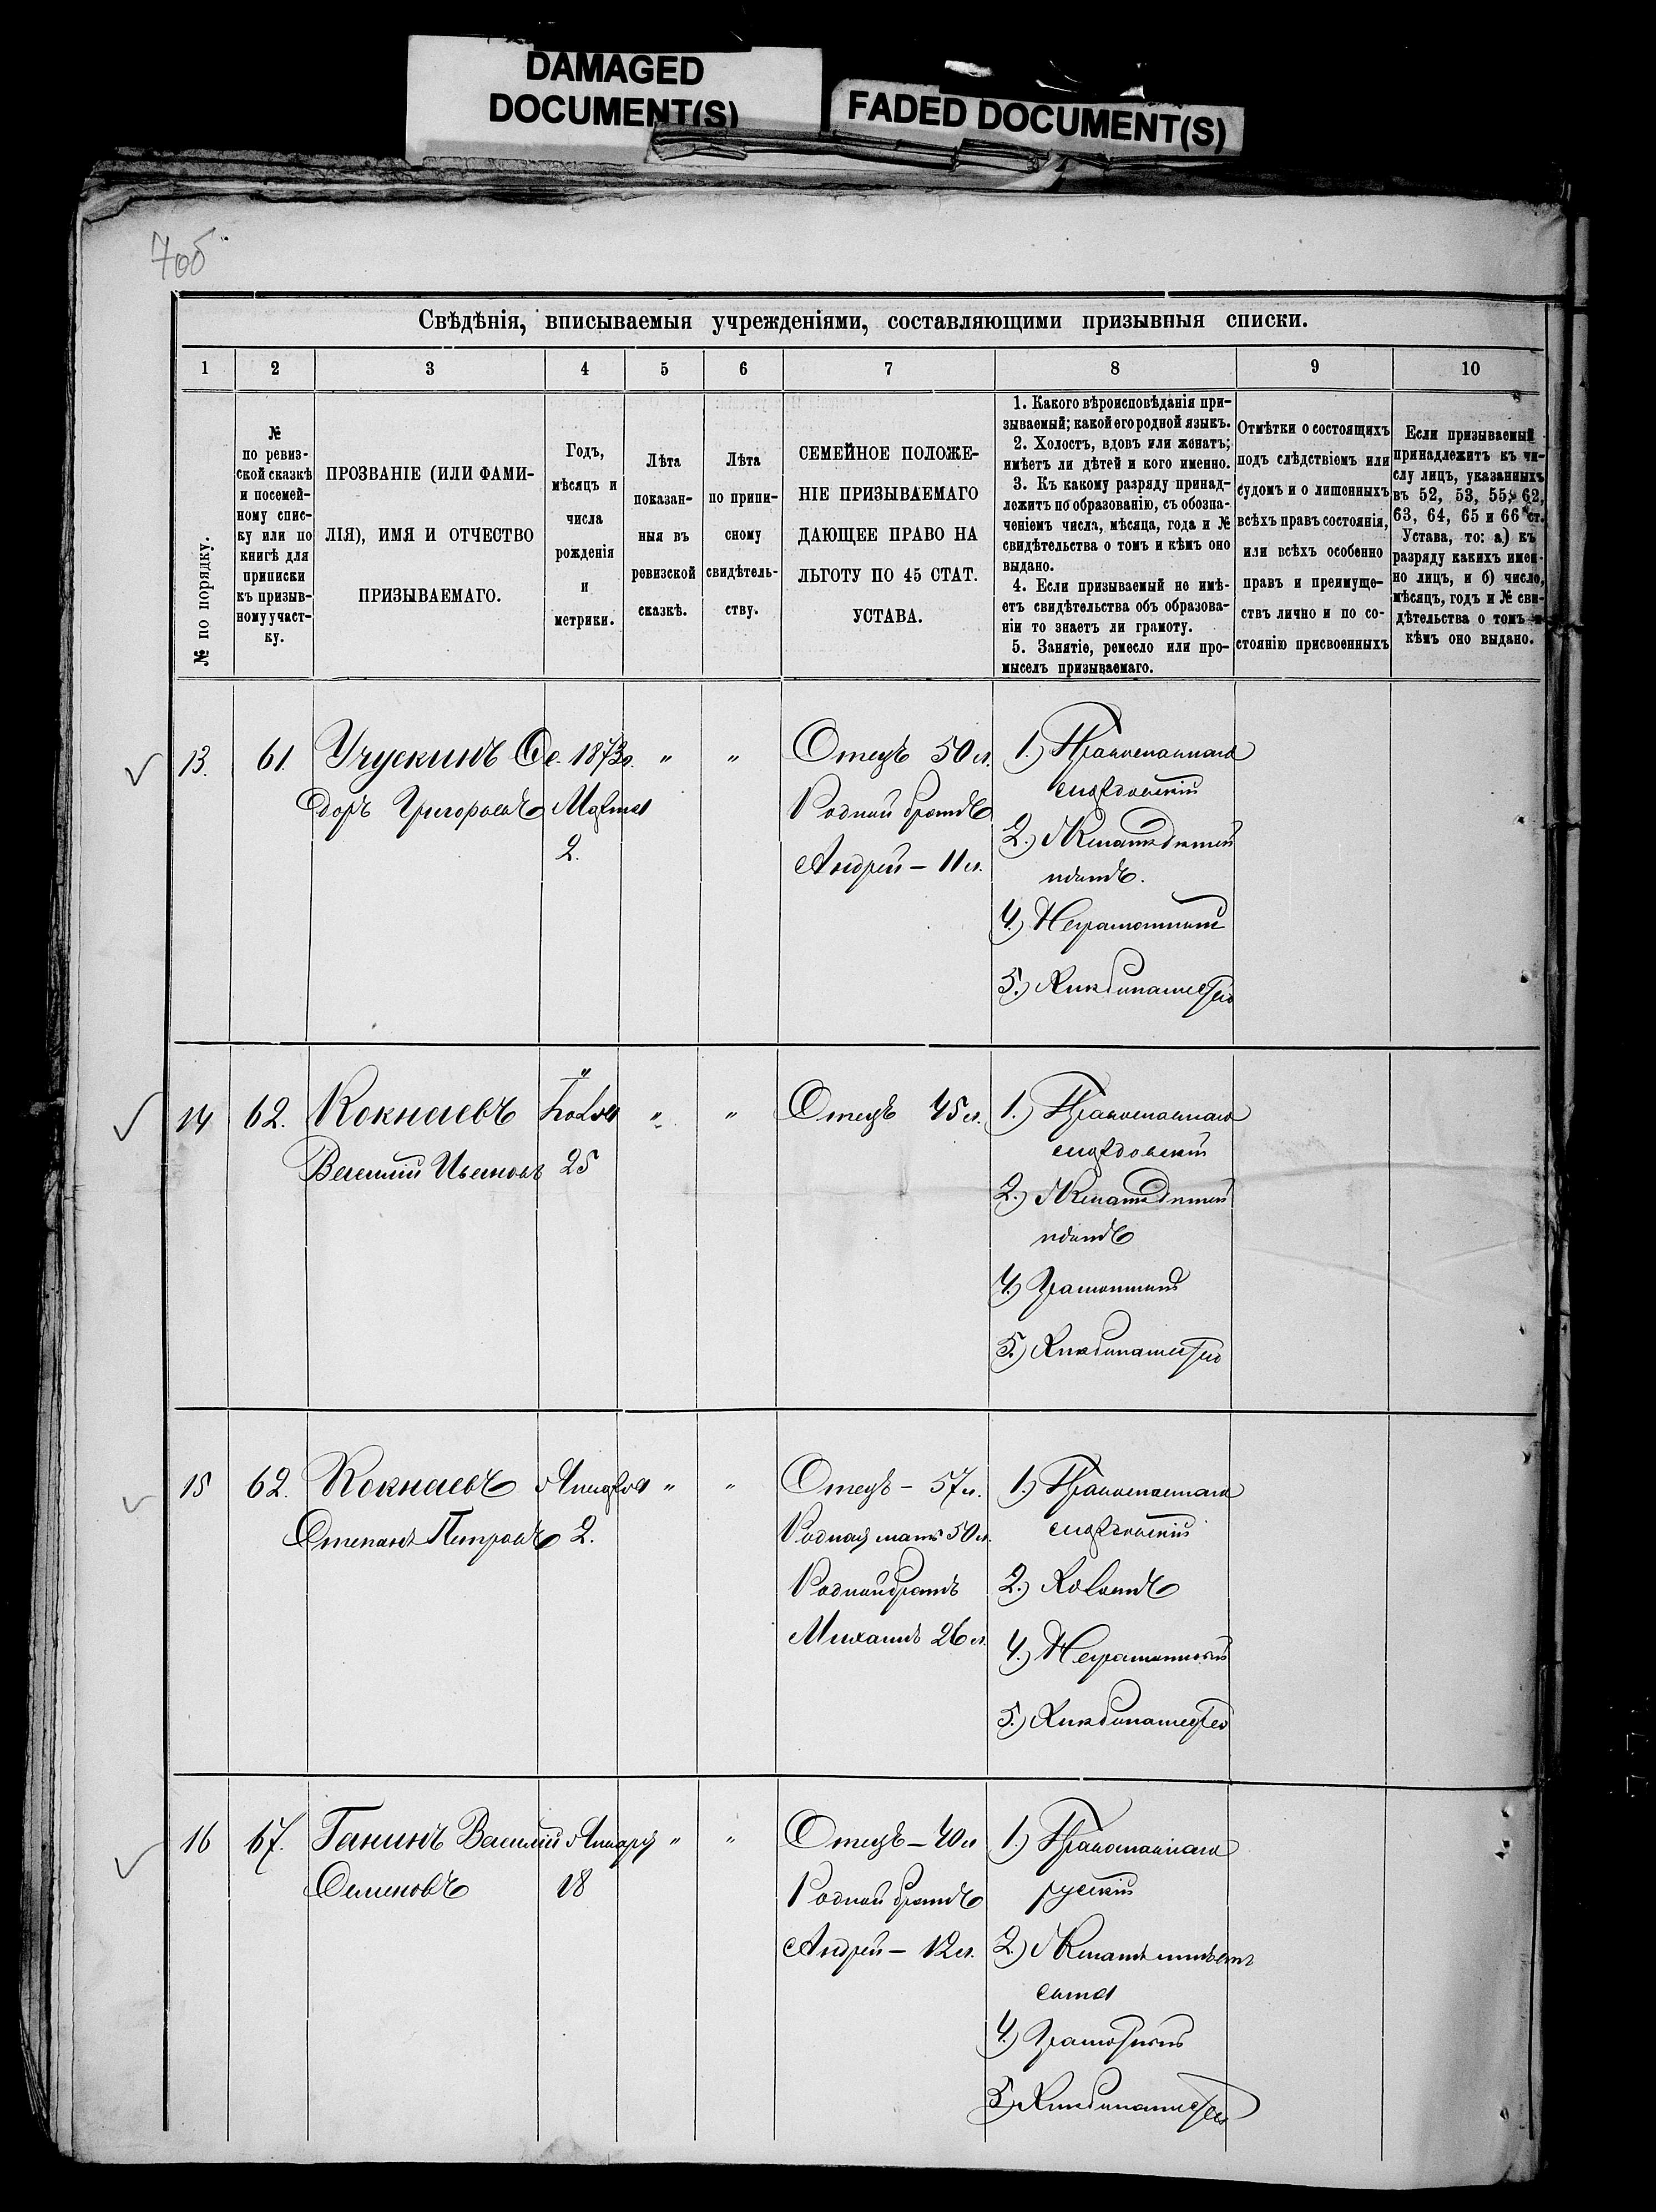 DAMAGED
DOCUMENT(S)
FADED DOCUMENT(S)
70б
Свѣдѣнія, вписываемыя учрежденіями, составляющими призывныя списки.
1 2 3 4 5 6 7 8 9 10
№ по порядку.
№
по ревиз-
ской сказкѣ
и посемей-
ному спис-
ку или по
книгѣ для
приписки
къ призыв-
ному участ-
ку.
ПРОЗВАНІЕ (ИЛИ ФАМИ-
ЛІЯ), ИМЯ И ОТЧЕСТВО
ПРИЗЫВАЕМАГО.
Годъ,
мѣсяцъ и
числа
рожденія
и
метрики.
Лѣта
показан-
ныя въ
ревизской
сказкѣ.
Лѣта
по припи-
сному
свидѣтель-
ству.
СЕМЕЙНОЕ ПОЛОЖЕ-
НІЕ ПРИЗЫВАЕМАГО
ДАЮЩЕЕ ПРАВО НА
ЛЬГОТУ ПО 45 СТАТ.
УСТАВА.
1. Какого вѣроисповѣданія при-
зываемый; какой его родной языкъ.
2. Холостъ, вдовъ или женатъ;
имѣетъ ли дѣтей и кого именно.
3. Къ какому разряду принад-
лежитъ по образованію, съ обозна-
ченіемъ числа, мѣсяца, года и №
свидѣтельства о томъ и кѣмъ оно
выдано.
4. Если призываемый не имѣ-
етъ свидѣтельства объ образова-
ніи то знаетъ ли грамоту.
5. Занятіе, ремесло или про-
мыселъ призываемаго.
Отмѣтки о состоящихъ
подъ слѣдствіемъ или
судомъ и о лишенныхъ
всѣхъ правъ состоянія,
или всѣхъ особенно
правъ и преимуще-
ствъ лично и по со-
стоянію присвоенныхъ
Если призываемый
принадлежитъ къ чи-
слу лицъ, указанныхъ
въ 52, 53, 55, 62,
63, 64, 65 и 66 ст.
Устава, то: а) къ
разряду какихъ имен-
но лицъ, и б) число,
мѣсяцъ, годъ и № сви-
дѣтельства о томъ и
кѣмъ оно выдано.
13. 61. Учускинъ Ѳе- 1873г. " " Отецъ 50 л. 1.) Православнаго
доръ Григорьевъ Марта Родной братъ мордовскій
2. Андрей – 11 л. 2.) Женатъ дѣтей
нѣтъ.
4.) Неграмотный
5.) Хлѣбопашество
14 62. Кокнаевъ " " " Отецъ 45 л. 1.) Православнаго
Василій 25 мордовскій
2.) Женатъ дѣтей
нѣтъ
4.) Грамотный
5.) Хлѣбопашество
15 62. Кокнаевъ Января " " Отецъ – 57 л. 1.) Православнаго
Степанъ Петровъ 2. Родная мать 50 л. мордовскій
Родной братъ 2.) Холостъ
Михаилъ 26 л. 4.) Неграмотный
5.) Хлѣбопашество
16 67. Ганинъ Василій Января " " Отецъ – 40 л 1.) Православнаго
Семеновъ 18 Родной братъ русскій
Андрей – 12 л. 2.) Женатъ имѣетъ
сына
4.) Грамотный
5.) Хлѣбопашество